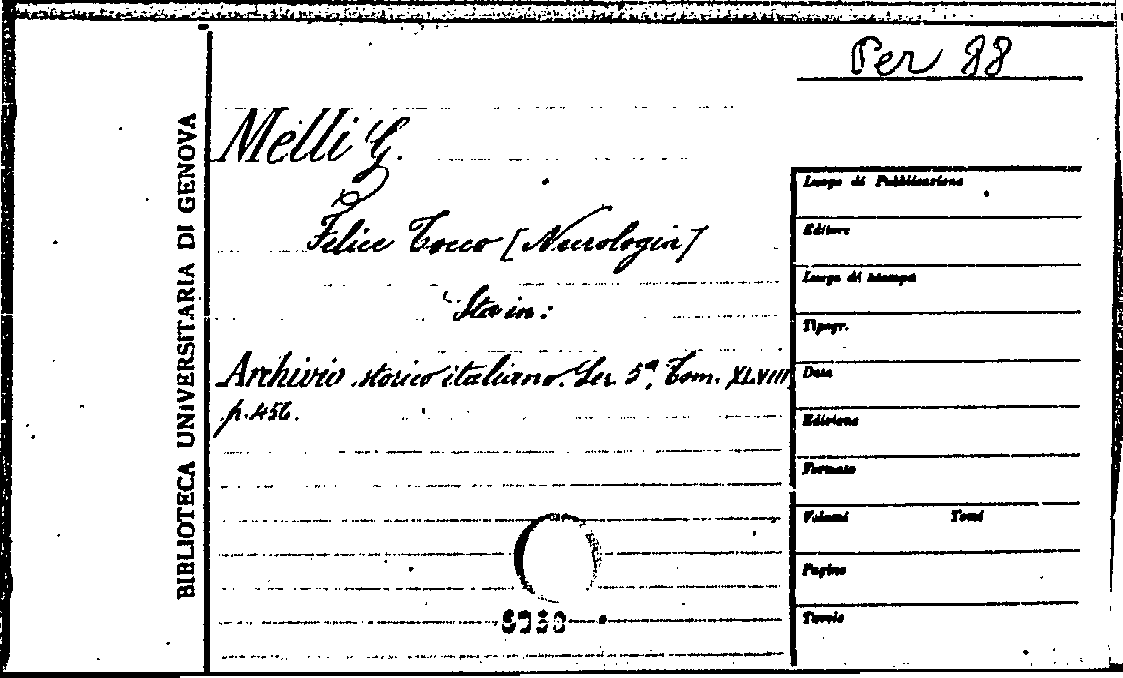 Per 88
BIBLIOTECA UNIVERSITARIA DI GENOVA
Melli G.
Felice Tocco [Necrologia]
Sta in:
Archivio storico italiano. Ser. 5ª, Tom. XLVIII
p. 456.
Luogo di Pubblicazione
Editore
Luogo di stampa
Tipogr.
Data
Edizione
Formato
Volumi Tomi
Pagine
Tavole